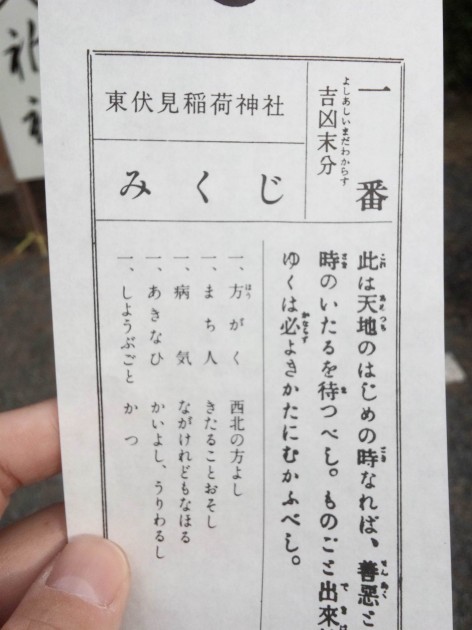 一番
よしあしいまだわからず
吉凶末分
東伏見稲荷神社
みくじ
此は天地のはじめの時なれば、善悪
時のいたるを待つべし。ものごと出來
ゆくは必よきかたにむかふべし。
一、方がく 西北の方よし
一、まち人 きたることおそし
一、病気 ながけれどもなほる
一、あきなひ かいよし、うりわるし
一、しようぶごと かつ